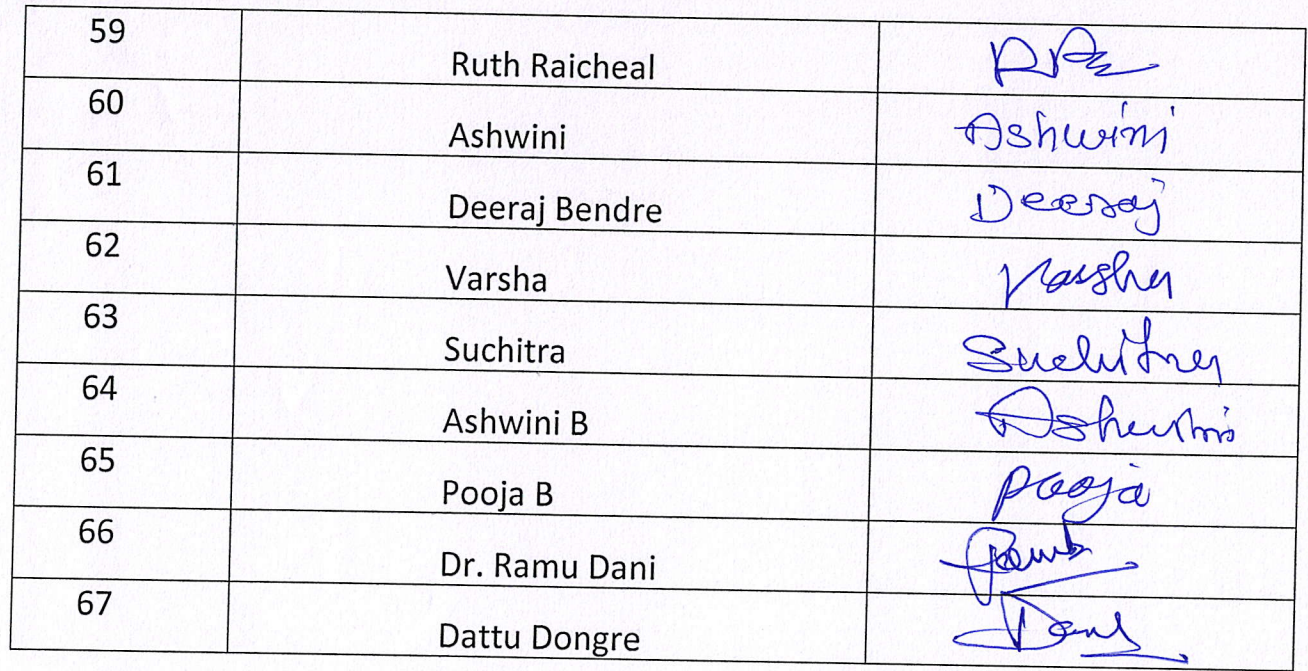 59 Ruth Raicheal
60 Ashwini Ashwini
61 Deeraj Bendre Deeraj
62 Varsha Varsha
63 Suchitra Suchitra
64 Ashwini B Ashwini
65 Pooja B pooja
66 Dr. Ramu Dani Ramu
67 Dattu Dongre